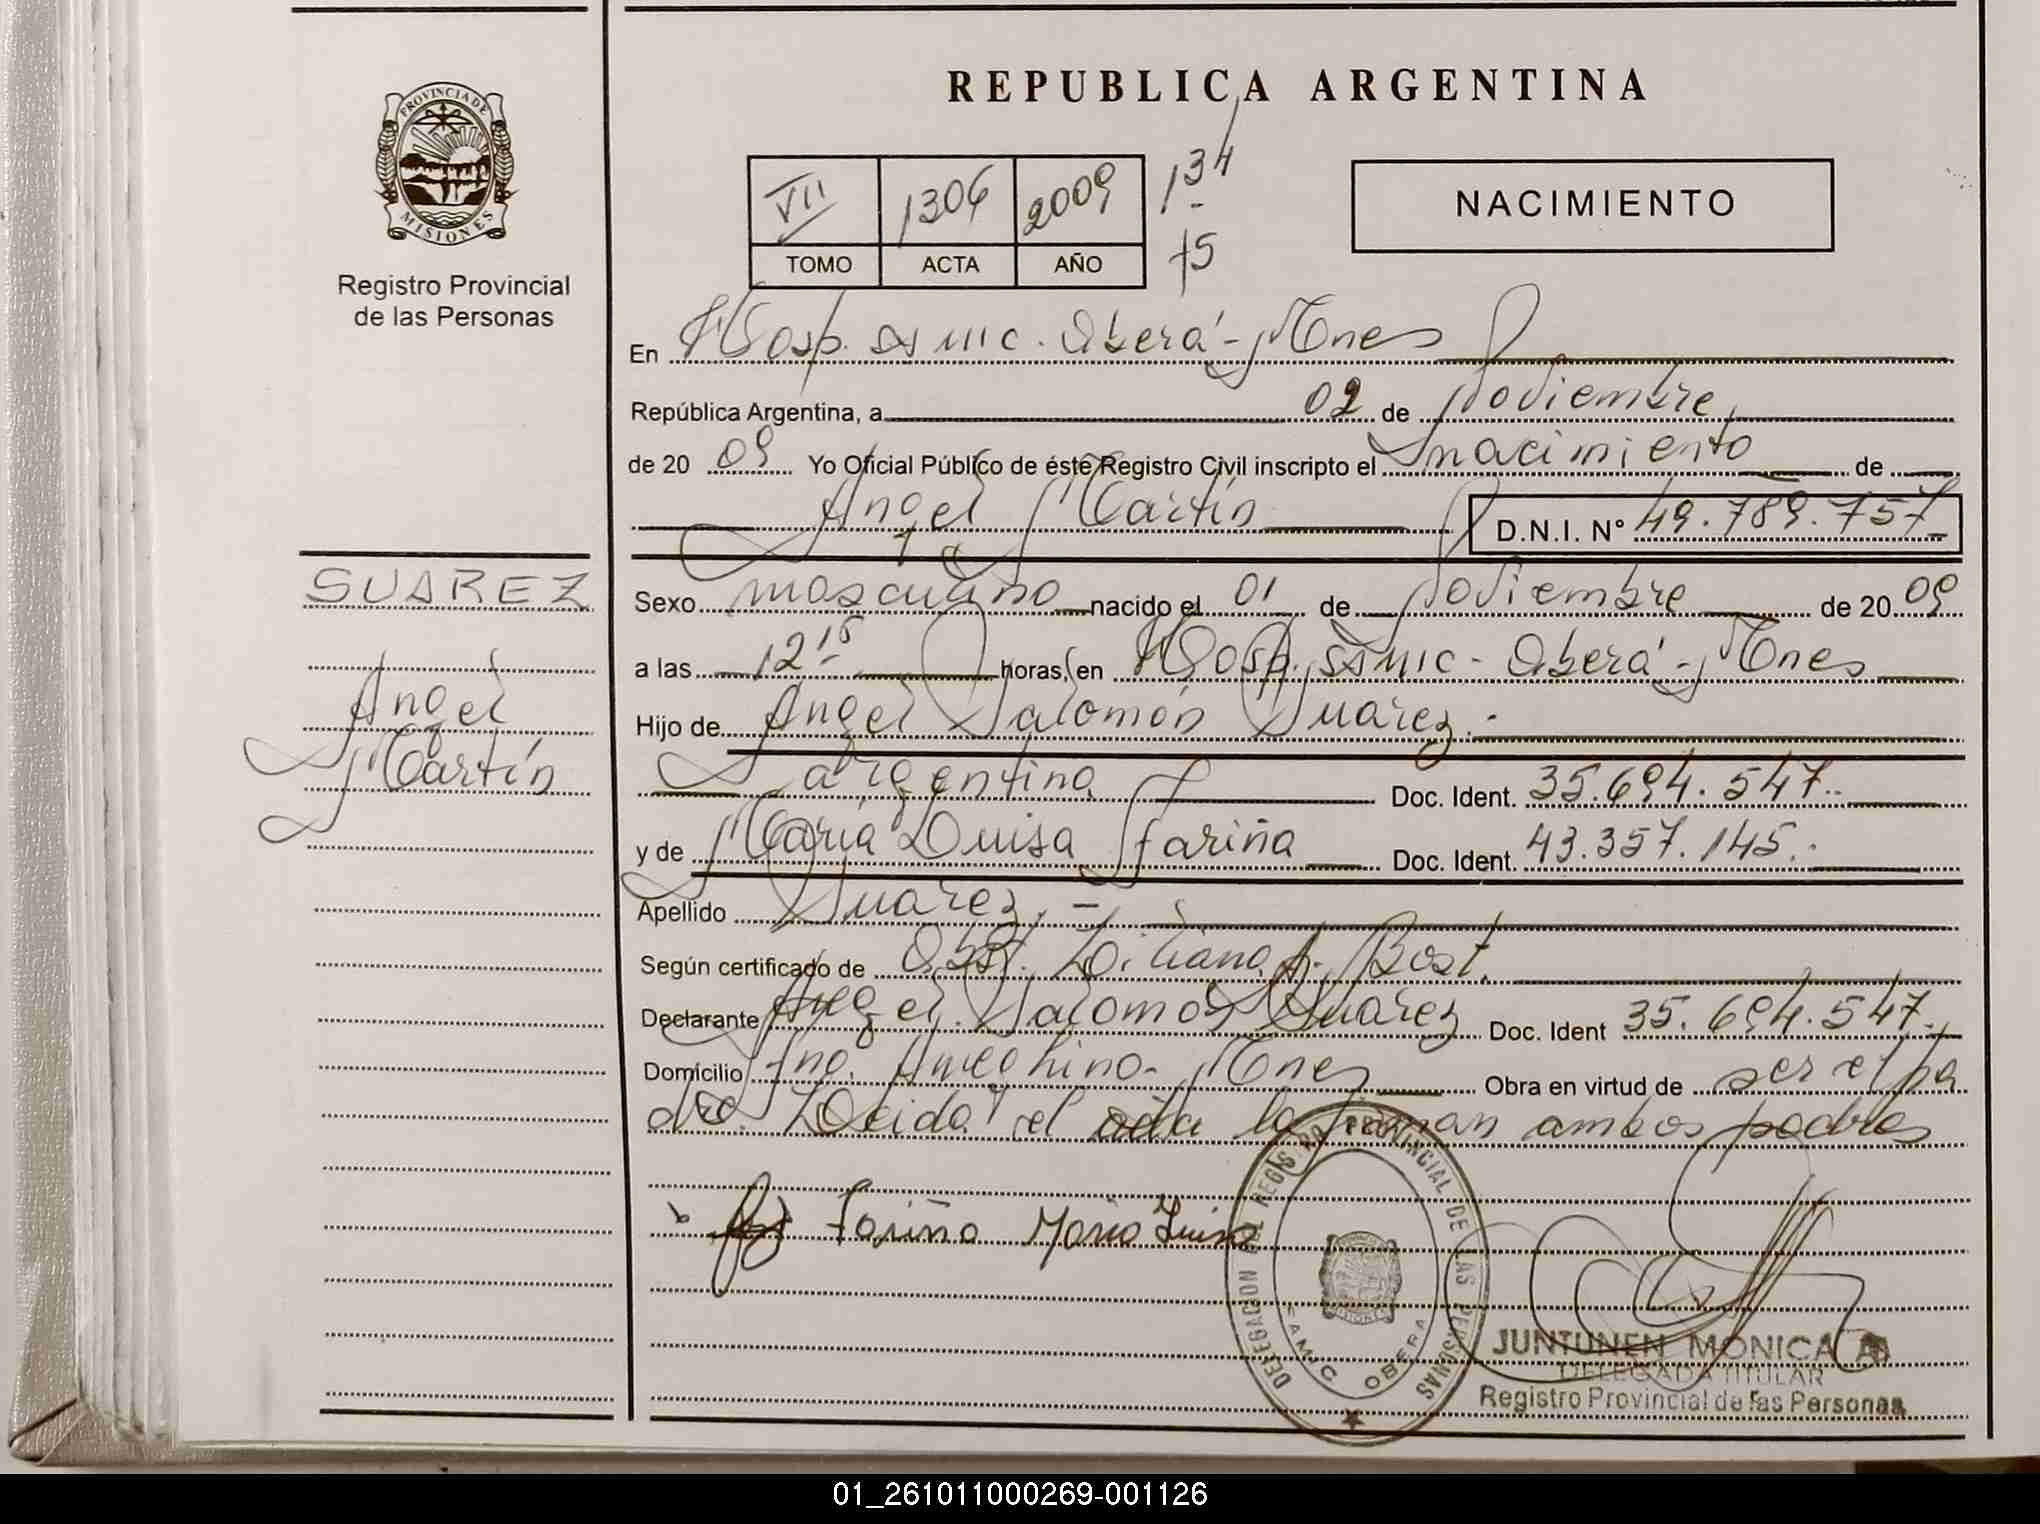 REPUBLICA ARGENTINA
PROVINCIA DE
MISIONES
Registro Provincial
de las Personas
VII 1306 2009 134
TOMO ACTA AÑO 75
NACIMIENTO
En Hosp. SAMIC. Oberá - Mnes
República Argentina, a 02 de Noviembre
de 20 09 Yo Oficial Público de éste Registro Civil inscripto el nacimiento de
Angel Martín D.N.I. Nº 49.789.757
SUAREZ
Angel
Martín
Sexo masculino nacido el 01 de Noviembre de 20 09
a las 12 15 horas, en Hosp. SAMIC - Oberá - Mnes
Hijo de Angel Salomón Suarez.-
argentina Doc. Ident. 35.694.547.-
y de María Luisa Fariña Doc. Ident. 43.357.145.-
Apellido Suarez.-
Según certificado de Obst. Liliana A. Bost.
Declarante Angel Salomón Suarez Doc. Ident 35.694.547.-
Domicilio Ameghino - Mnes Obra en virtud de ser el pa
dre. Leida el acta la firman ambos padres
Fariña Maria Luisa
DELEGACION DEL REGISTRO PROVINCIAL DE LAS PERSONAS
SAMIC OBERA
JUNTUNEN MONICA
DELEGADA TITULAR
Registro Provincial de las Personas
01_261011000269-001126